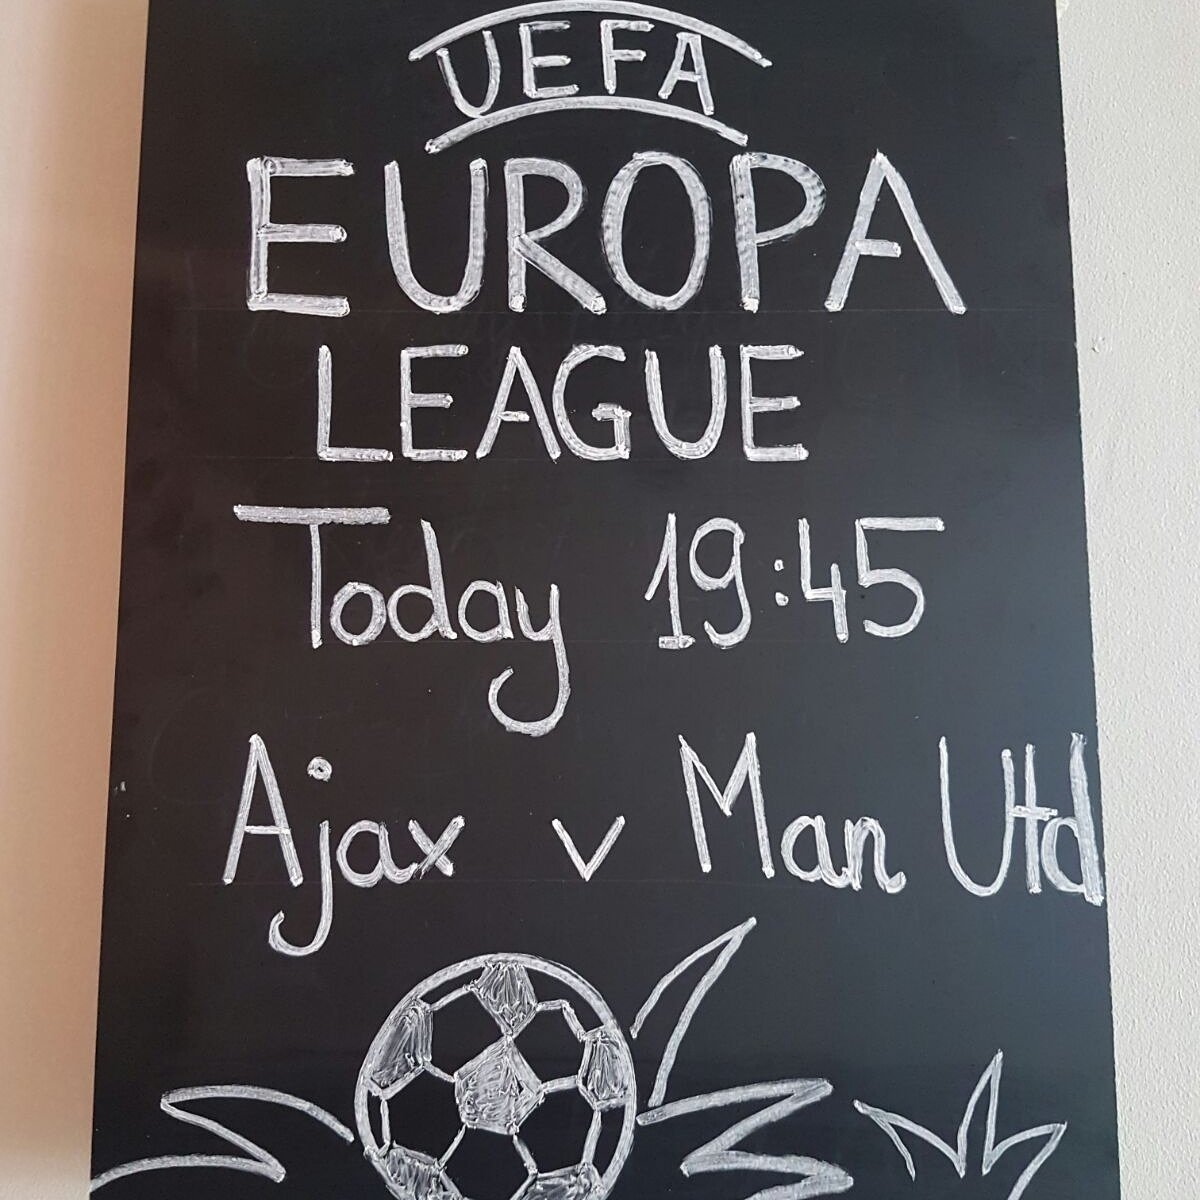 UEFA
EUROPA
LEAGUE
Today 19:45
Ajax v Man Utd